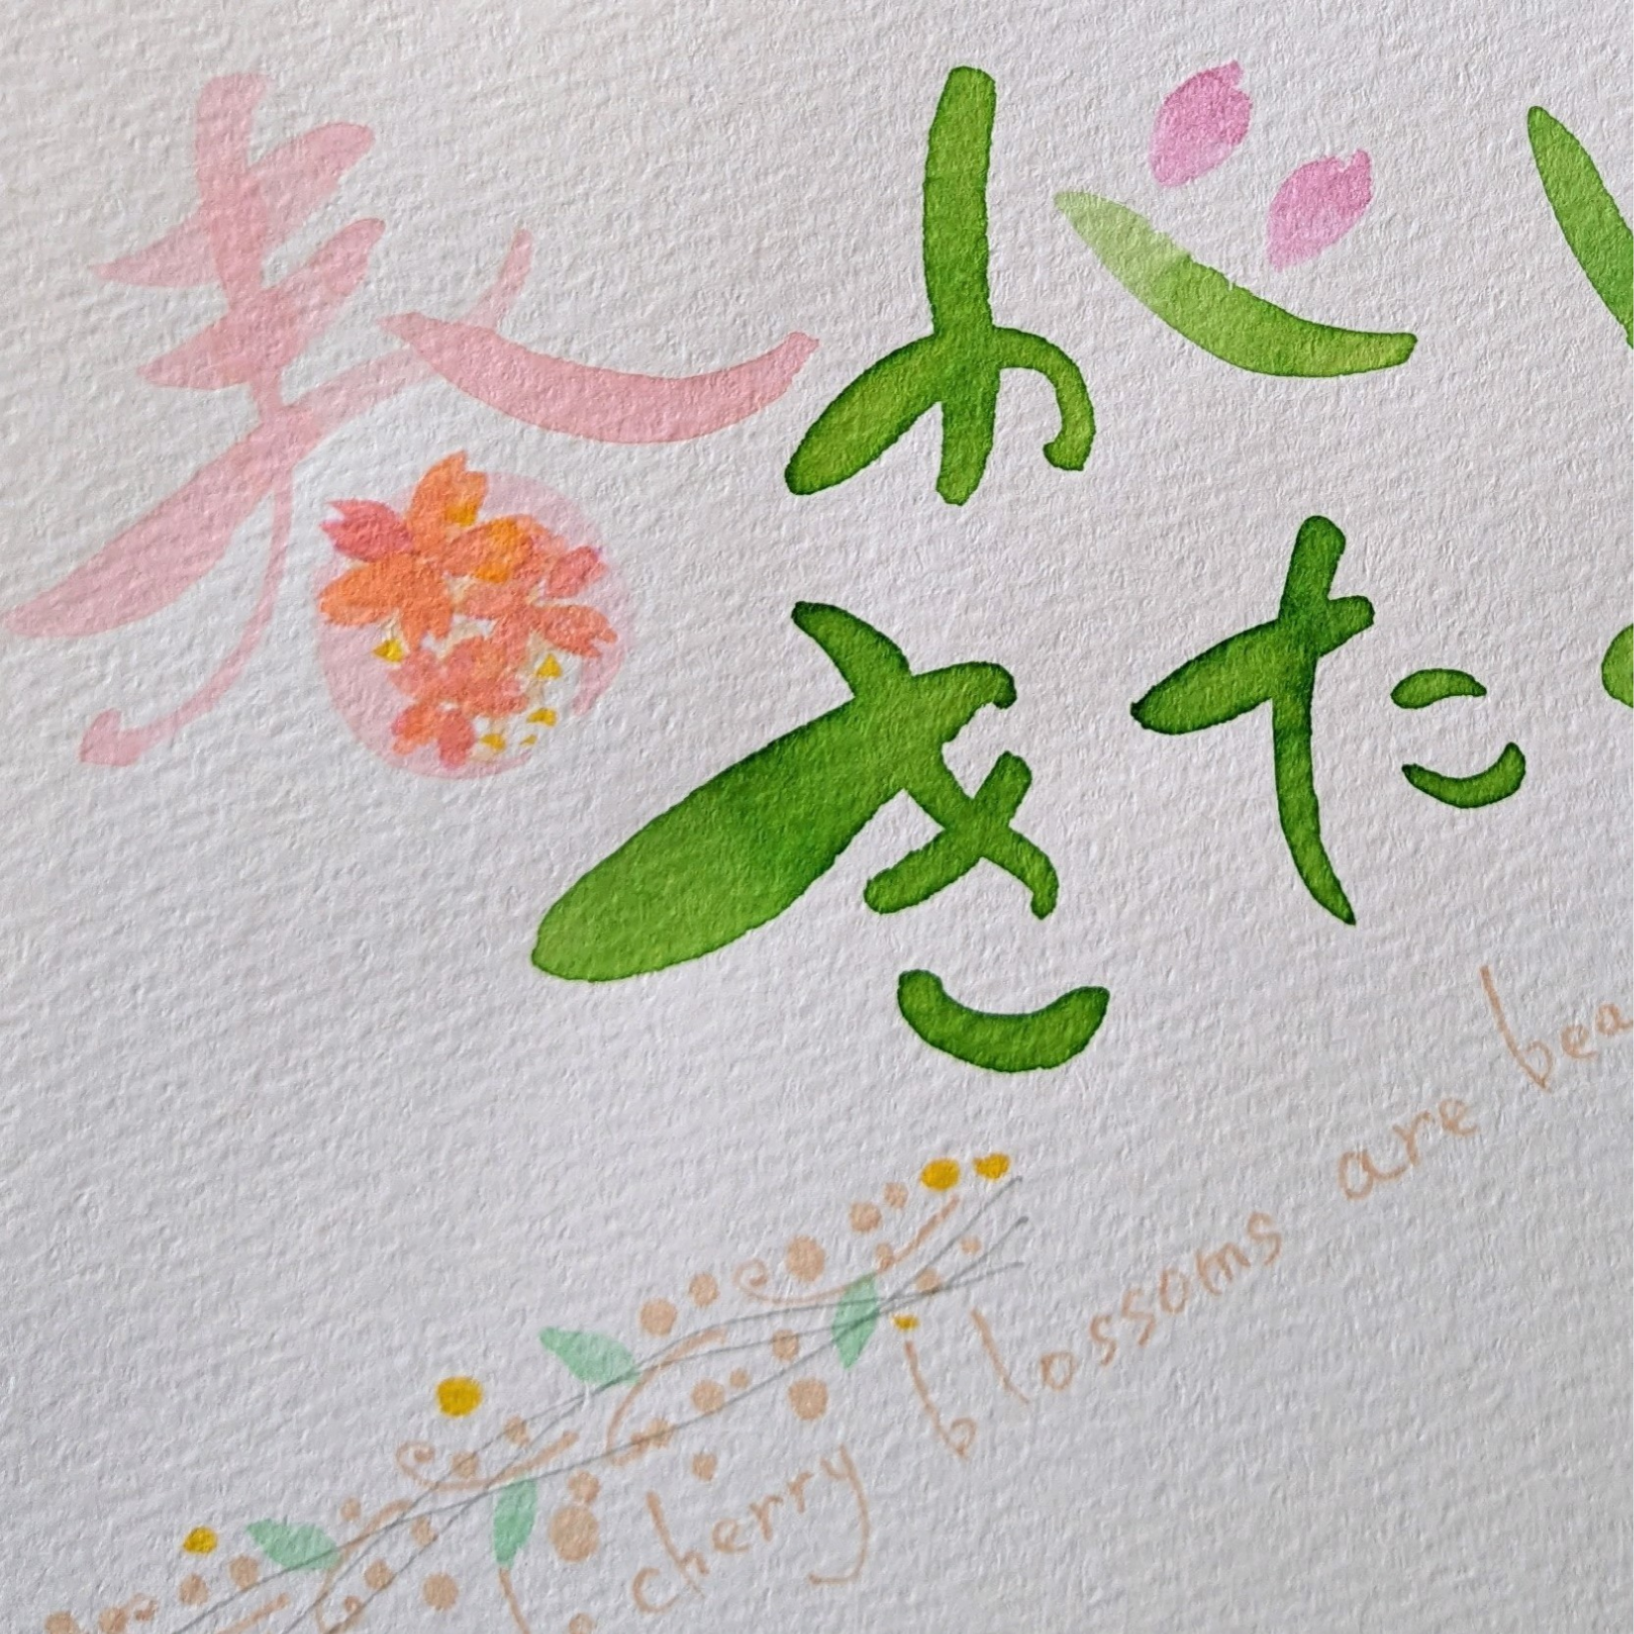 春が
きた
cherry blossoms are bea